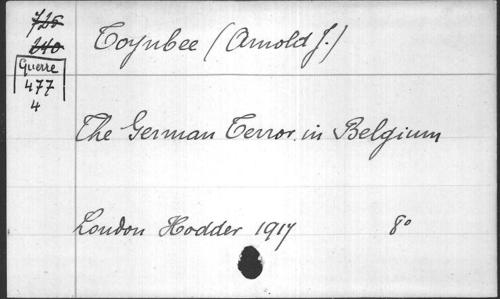 725
240
Guerre
477
4
Toynbee (Arnold J.)
The German Terror in Belgium
London Hodder 1917 8°